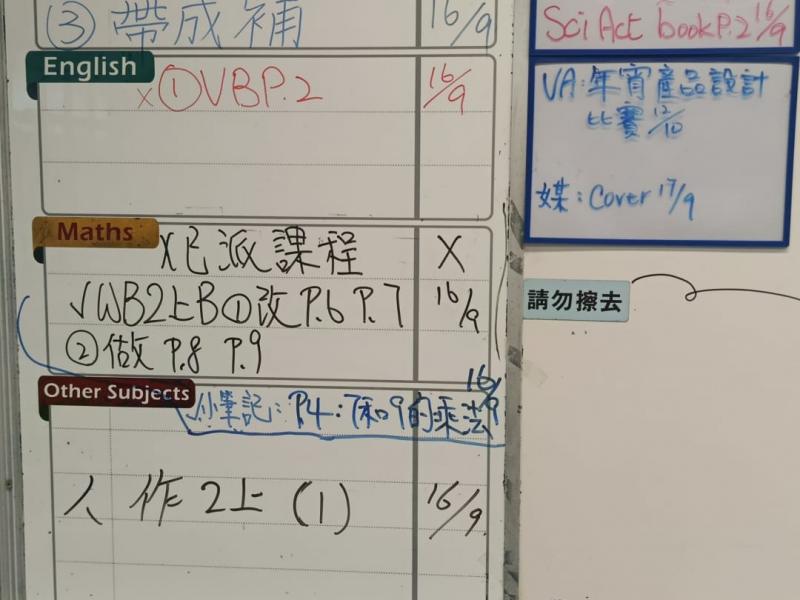 ③ 帶成補 16/9
English
x ① VB P.2 16/9
Maths
x 已派課程 X
√ WB2上B ① 改 P.6 P.7 16/9
② 做 P.8 P.9
Other Subjects
√ 小筆記: P.4: 7和9的乘法 16/9
人 作2上 (1) 16/9
Sci Act book P.2 16/9
VA: 年宵產品設計
比賽 12/10
媒: Cover 17/9
請勿擦去